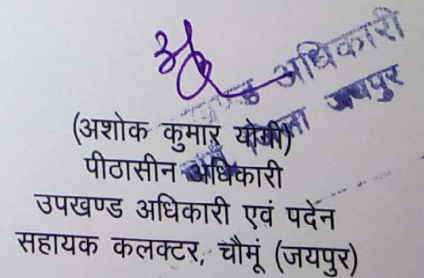 अधिकारी
जयपुर
(अशोक कुमार योगी)
पीठासीन अधिकारी
उपखण्ड अधिकारी एवं पदेन
सहायक कलक्टर, चौमूं (जयपुर)